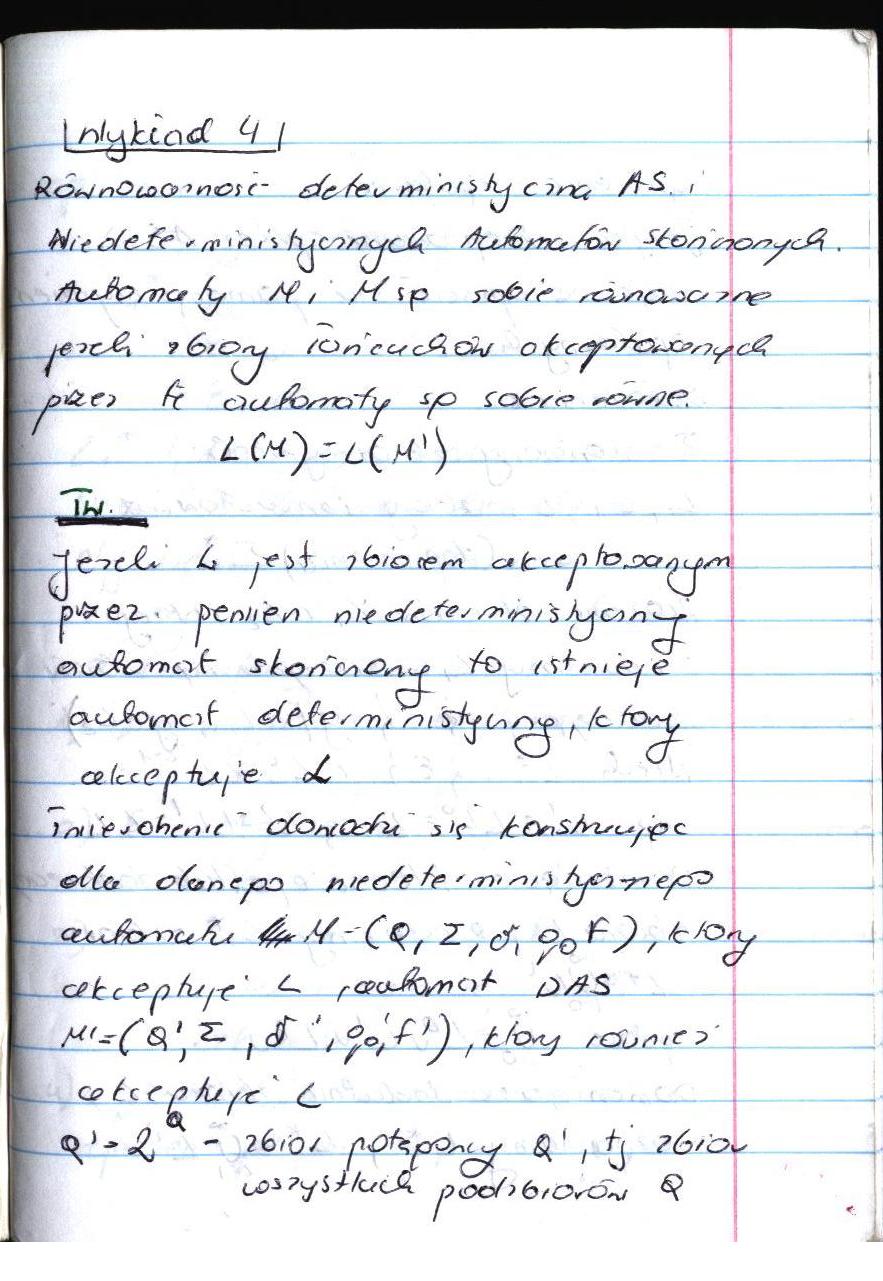 Wykład 4
Równoważność deterministyczna AS. i
Niedeterministycznych Automatów skończonych.
Automaty M i M są sobie równoważne
jeżeli zbiory łańcuchów akceptowanych
przez te automaty są sobie równe.
L(M) = L(M')
Tw.
Jeżeli L jest zbiorem akceptowanym
przez pewien niedeterministyczny
automat skończony to istnieje
automat deterministyczny, który
akceptuje L
dowodzi się konstruując
dla danego niedeterministycznego
automatu M-(Q, Σ, δ, q0 F), który
akceptuje L, automat DAS
M'=(Q', Σ, δ', q0', F'), który również
akceptuje L
Q' = 2^Q - zbiór potęgowy Q', tj zbiór
wszystkich podzbiorów Q